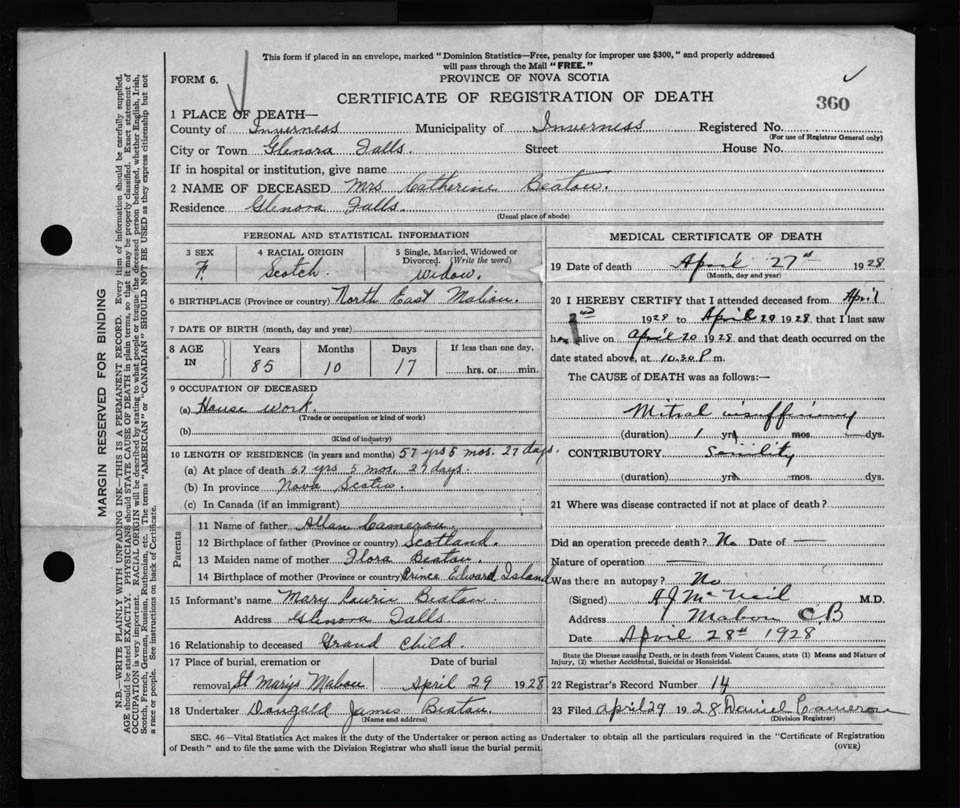 This form if placed in an envelope, marked "Dominion Statistics—Free, penalty for improper use $300," and properly addressed
will pass through the Mail "FREE."
FORM 6.
PROVINCE OF NOVA SCOTIA
CERTIFICATE OF REGISTRATION OF DEATH
360
1 PLACE OF DEATH—
County of Inverness Municipality of Inverness Registered No.
(For use of Registrar General only)
City or Town Glenora Falls. Street House No.
If in hospital or institution, give name
2 NAME OF DECEASED Mrs Catherine Beaton.
Residence Glenora Falls.
(Usual place of abode)
PERSONAL AND STATISTICAL INFORMATION
3 SEX 4 RACIAL ORIGIN 5 Single, Married, Widowed or
Divorced. (Write the word)
F. Scotch. Widow.
6 BIRTHPLACE (Province or country) North East Mabou.
7 DATE OF BIRTH (month, day and year)
8 AGE IN Years Months Days If less than one day,
85 10 17 hrs. or min.
9 OCCUPATION OF DECEASED
(a) House work.
(Trade or occupation or kind of work)
(b)
(Kind of industry)
10 LENGTH OF RESIDENCE (in years and months) 57 yrs 5 mos. 27 days.
(a) At place of death 57 yrs 5 mos. 27 days.
(b) In province Nova Scotia.
(c) In Canada (if an immigrant)
Parents
11 Name of father Allan Cameron.
12 Birthplace of father (Province or country) Scotland.
13 Maiden name of mother Flora Beaton.
14 Birthplace of mother (Province or country) Prince Edward Island
15 Informant's name Mary Beaton.
Address Glenora Falls.
16 Relationship to deceased Grand Child.
17 Place of burial, cremation or Date of burial
removal St Marys Mabou April 29 1928
18 Undertaker Dougald James Beaton.
(Name and address)
MEDICAL CERTIFICATE OF DEATH
19 Date of death April 27 1928
(Month, day and year)
20 I HEREBY CERTIFY that I attended deceased from April
1928 to April 20 1928 that I last saw
her alive on April 20 1928 and that death occurred on the
date stated above, at 10.30 P m.
The CAUSE of DEATH was as follows:—
Mitral insufficiency
(duration) 1 yrs mos. — dys.
CONTRIBUTORY Senility
(duration) yrs mos. dys.
21 Where was disease contracted if not at place of death?
Did an operation precede death? No Date of —
Nature of operation —
Was there an autopsy? No
(Signed) A J McNeil M.D.
Address Mabou C.B
Date April 28th 1928
State the Disease causing Death, or in death from Violent Causes, state (1) Means and Nature of
Injury, (2) whether Accidental, Suicidal or Homicidal.
22 Registrar's Record Number 14
23 Filed April 29 1928 Daniel Cameron
(Division Registrar)
SEC. 46—Vital Statistics Act makes it the duty of the Undertaker or person acting as Undertaker to obtain all the particulars required in the "Certificate of Registration
of Death" and to file the same with the Division Registrar who shall issue the burial permit.
(OVER)
MARGIN RESERVED FOR BINDING
N.B.—WRITE PLAINLY WITH UNFADING INK—THIS IS A PERMANENT RECORD. Every item of information should be carefully supplied.
AGE should be stated EXACTLY. PHYSICIANS should STATE CAUSE OF DEATH in plain terms, so that it may be properly classified. Exact statement of
OCCUPATION is very important. RACIAL ORIGIN will be described by stating to what people or tongue the deceased person belonged, whether English, Irish,
Scotch, French, German, Russian, Ruthenian, etc. The terms "AMERICAN" or "CANADIAN" SHOULD NOT BE USED as they express citizenship but not
a race or people. See instructions on back of Certificate.